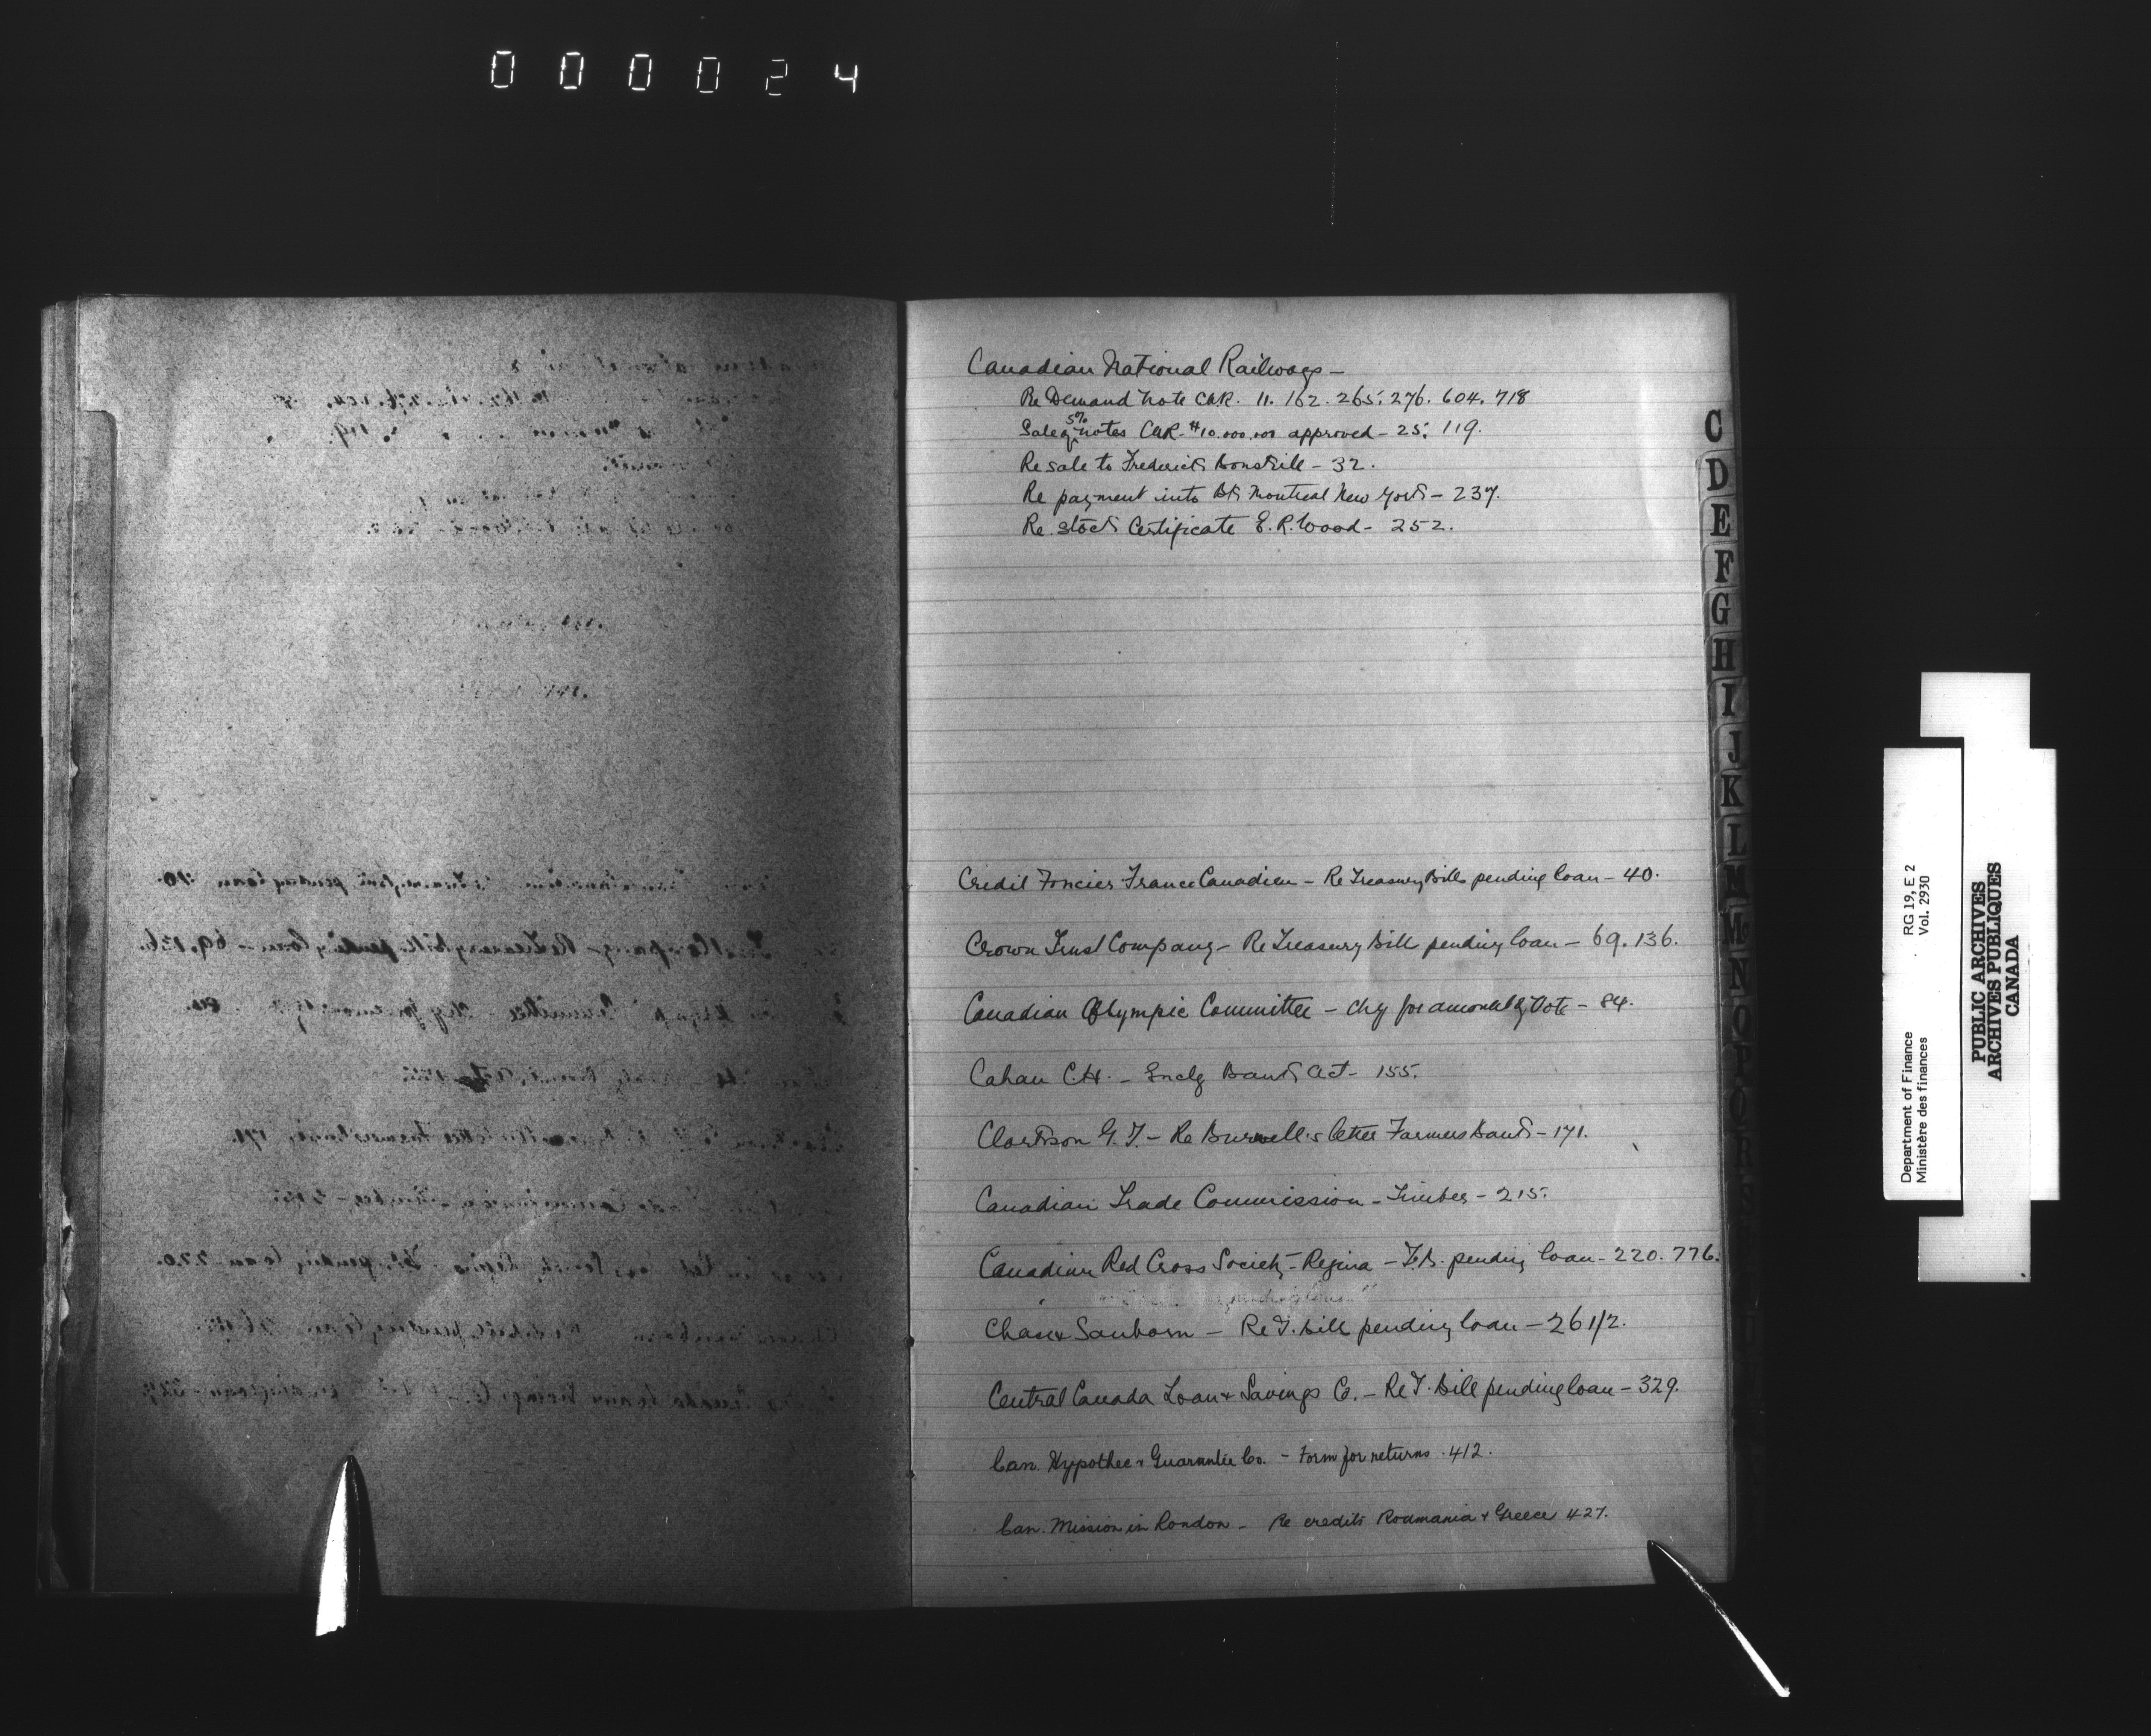 000024
Canadian National Railways –
Re Demand Note CNR. 11. 162. 265. 276. 604. 718
Sale of 5% notes CNR. $10.000.000 approved – 25. 119.
Re sale to Frederick – 32.
Re payment into Bk Montreal New York – 237.
Re. Stock Certificate E. R. Wood – 252.
Credit Foncier Franco Canadien – Re Treasury Bills pending loan – 40.
Crown Trust Company – Re Treasury Bill pending loan – 69. 136.
Canadian Olympic Committee – chq for amount of Vote – 84.
Cahan C.H. – Enclg Bank Act – 155.
Clarkson G. T. – Re Burwell's letter Farmers Bank – 171.
Canadian Trade Commission – Timber – 215.
Canadian Red Cross Society – Regina – T.B. pending loan – 220. 776.
Chase & Sanborn – Re T. Bill pending loan – 261/2.
Central Canada Loan & Savings Co. – Re T. Bill pending loan – 329.
Can. Hypothec & Guarantee Co. – Form for returns . 412.
Can. Mission in London – Re credits Roumania & Greece 427.
C
D
E
F
G
H
I
J
K
L
M
N
O
Department of Finance RG 19, E 2
Ministère des finances Vol. 2930
PUBLIC ARCHIVES
ARCHIVES PUBLIQUES
CANADA